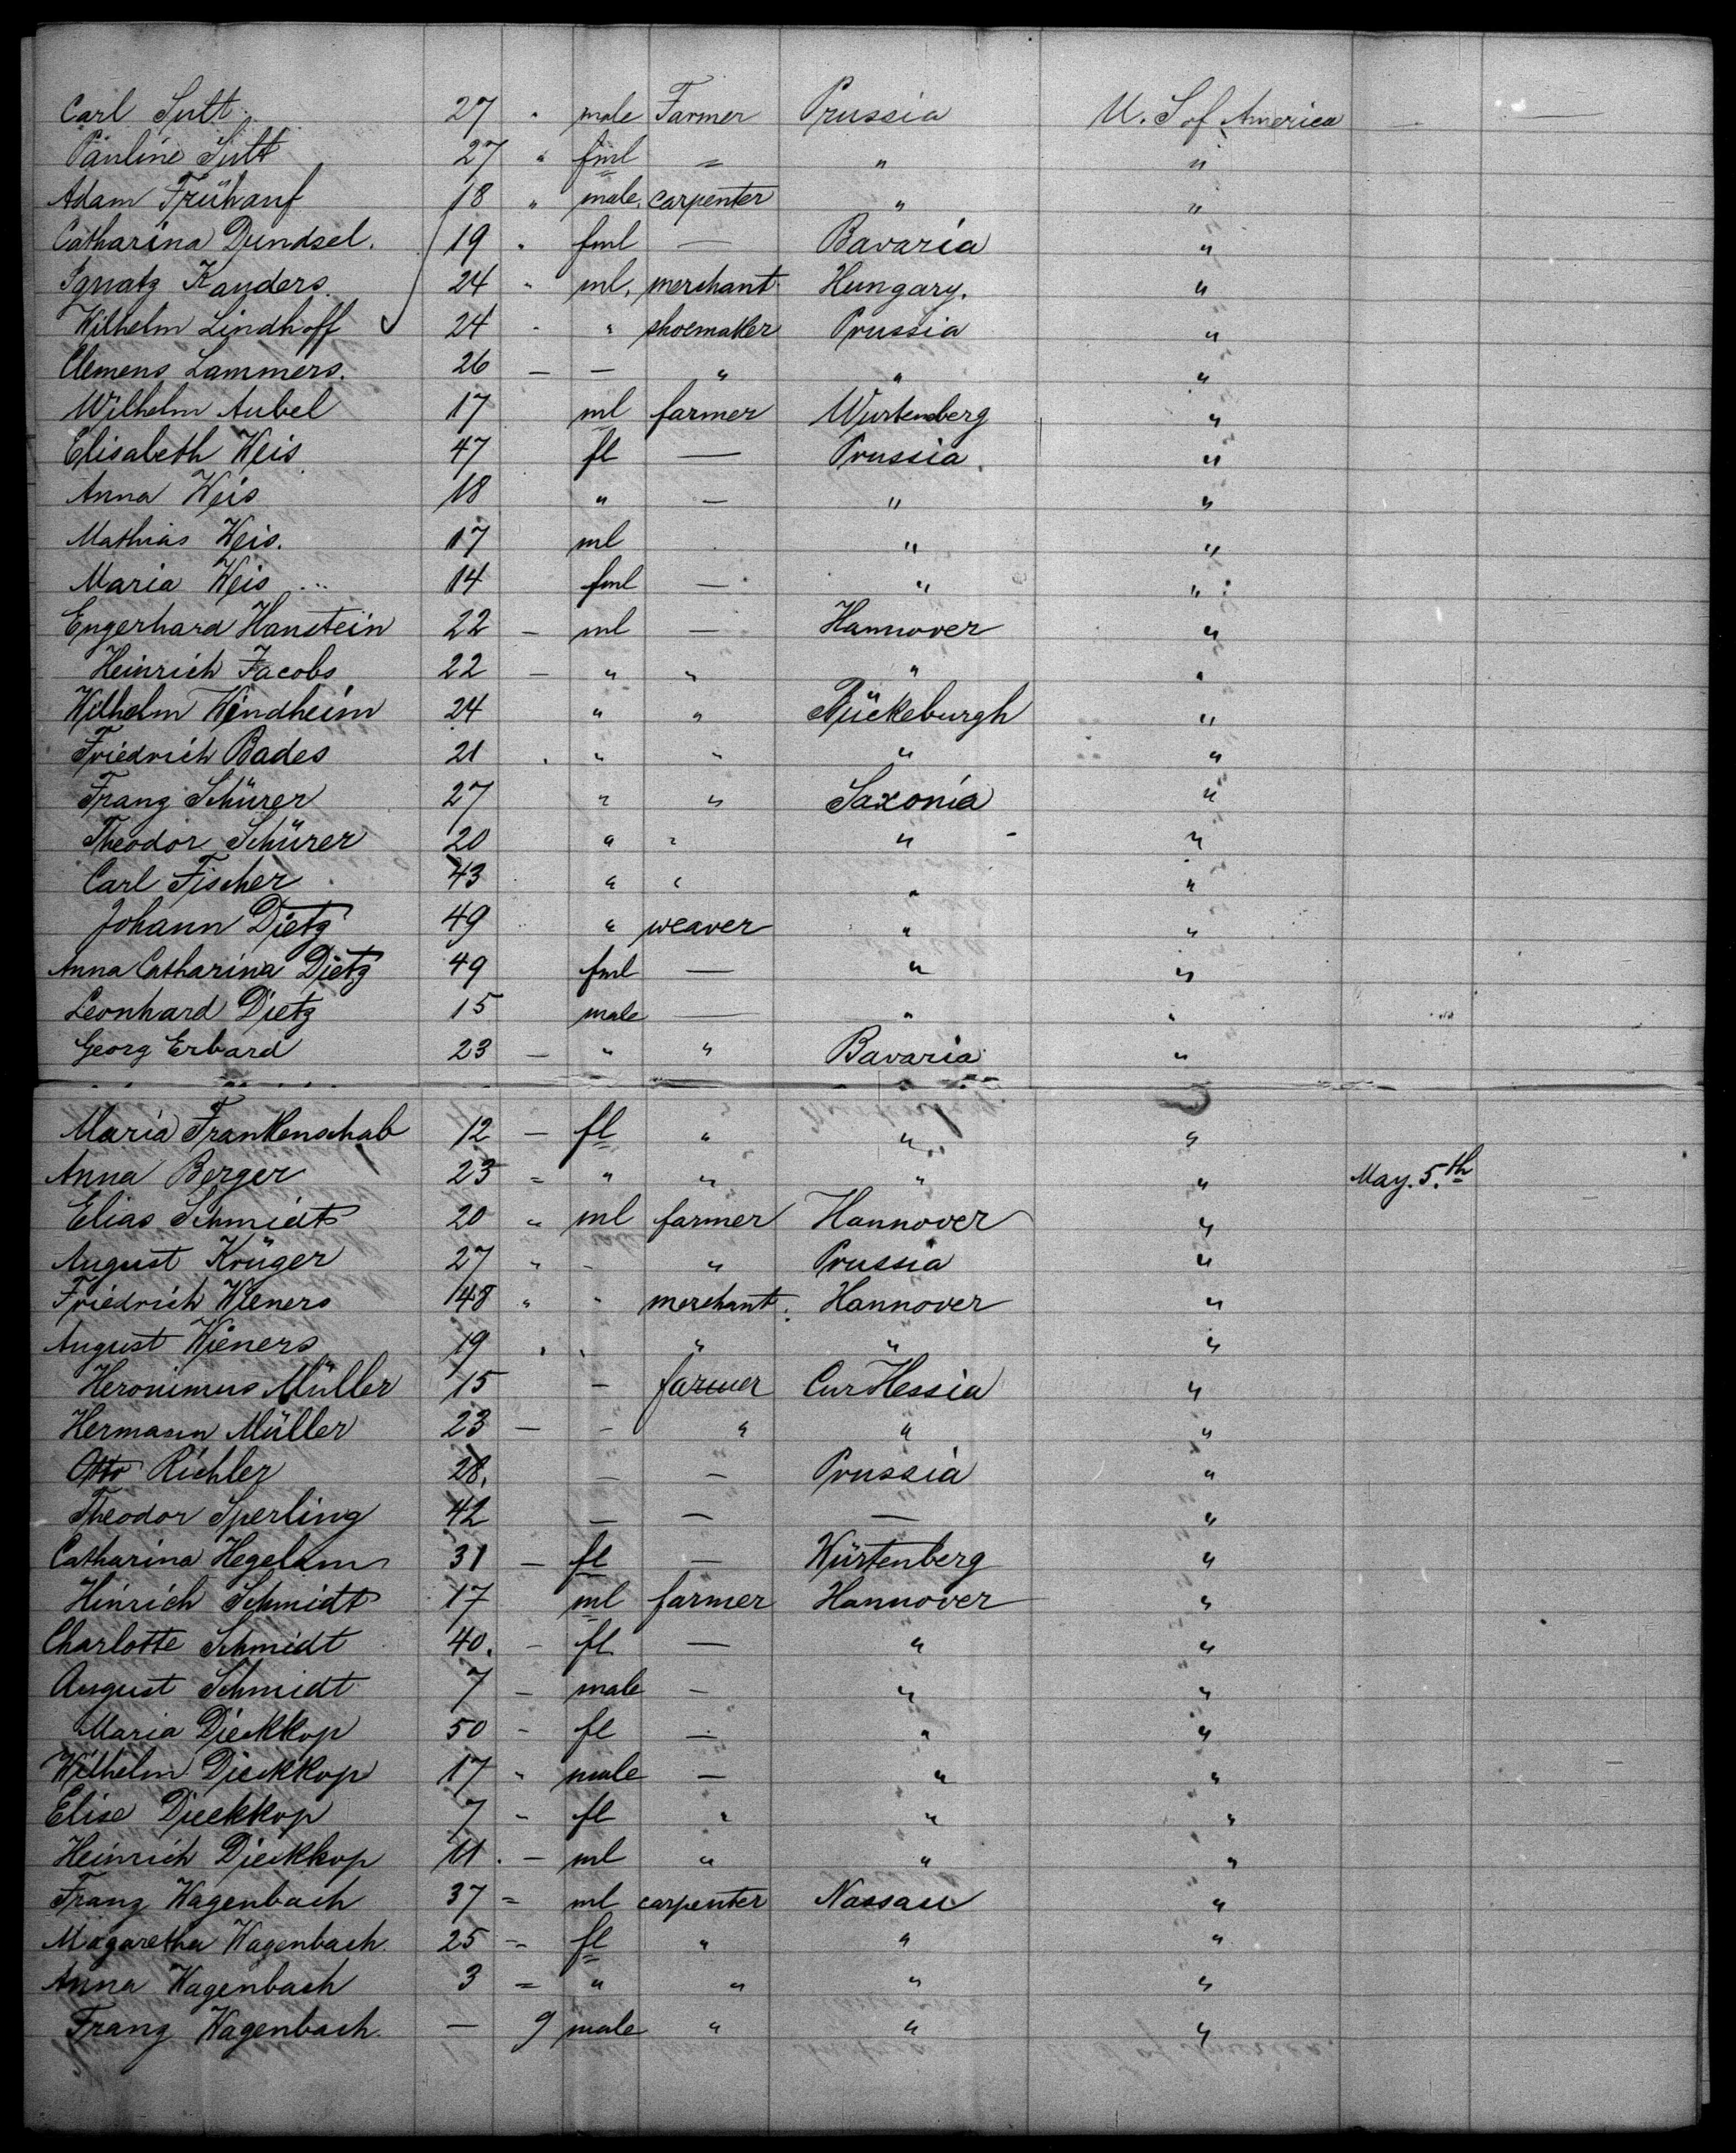 Carl Sutt 27 " male Farmer Prussia U. S of America — —
Pauline Sutt 27 " fml = " "
Adam Frühauf 18 " male. carpenter " "
Catharina Dundsel. 19 " fml — Bavaria "
Ignatz Kanders 24 " ml. merchant Hungary. "
Wilhelm Lindhoff 24 - " shoemaker Prussia "
Clemens Lammers. 26 — — " " "
Wilhelm Aubel 17 ml farmer Wurtemberg "
Elisabeth Weis 47 fl — Prussia "
Anna Weis 18 " — " "
Mathias Weis. 17 ml " "
Maria Weis 14 fml — " "
Engerhard Hanstein 22 — ml — Hannover "
Heinrich Jacobs 22 — " " " "
Wilhelm Windheim 24 " " Bückeburgh "
Friedrich Bades 21 . " " " "
Franz Schürer 27 " " Saxonia "
Theodor Schürer 20 " " " "
Carl Fischer 43 " " " "
Johann Dietz 49 " weaver " "
Anna Catharina Dietz 49 fml — " "
Leonhard Dietz 15 male — " "
Georg Erbard 23 — " " Bavaria "
Maria Frankenschab 12 — fl " " "
Anna Berger 23 = " " " " May. 5.th
Elias Schmidt 20 " ml farmer Hannover "
August Krüger 27 " - " Prussia "
Friedrich Wieners 48 " " merchant. Hannover "
August Wieners 19 " " " " "
Heronimus Müller 15 — farmer CurHessia "
Hermann Müller 23 — - " " "
Otto Richler 28. — — Prussia "
Theodor Sperling 42 — — — "
Catharina Hegelam 31 — fl — Würtenberg "
Hinrich Schmidt 17 ml farmer Hannover "
Charlotte Schmidt 40. - fl — " "
August Schmidt 7 — male — " "
Maria Dieckkop 50 - fl — " "
Wilhelm Dieckkop 17 " male — " "
Elise Dieckkop 7 - fl " " "
Heinrich Dieckkop 11. — ml " " "
Franz Wagenbach 37 = ml carpenter Nassau "
Magaretha Wagenbach 25 = fl " " "
Anna Wagenbach 3 = " " " "
Franz Wagenbach. — 9 male " " "